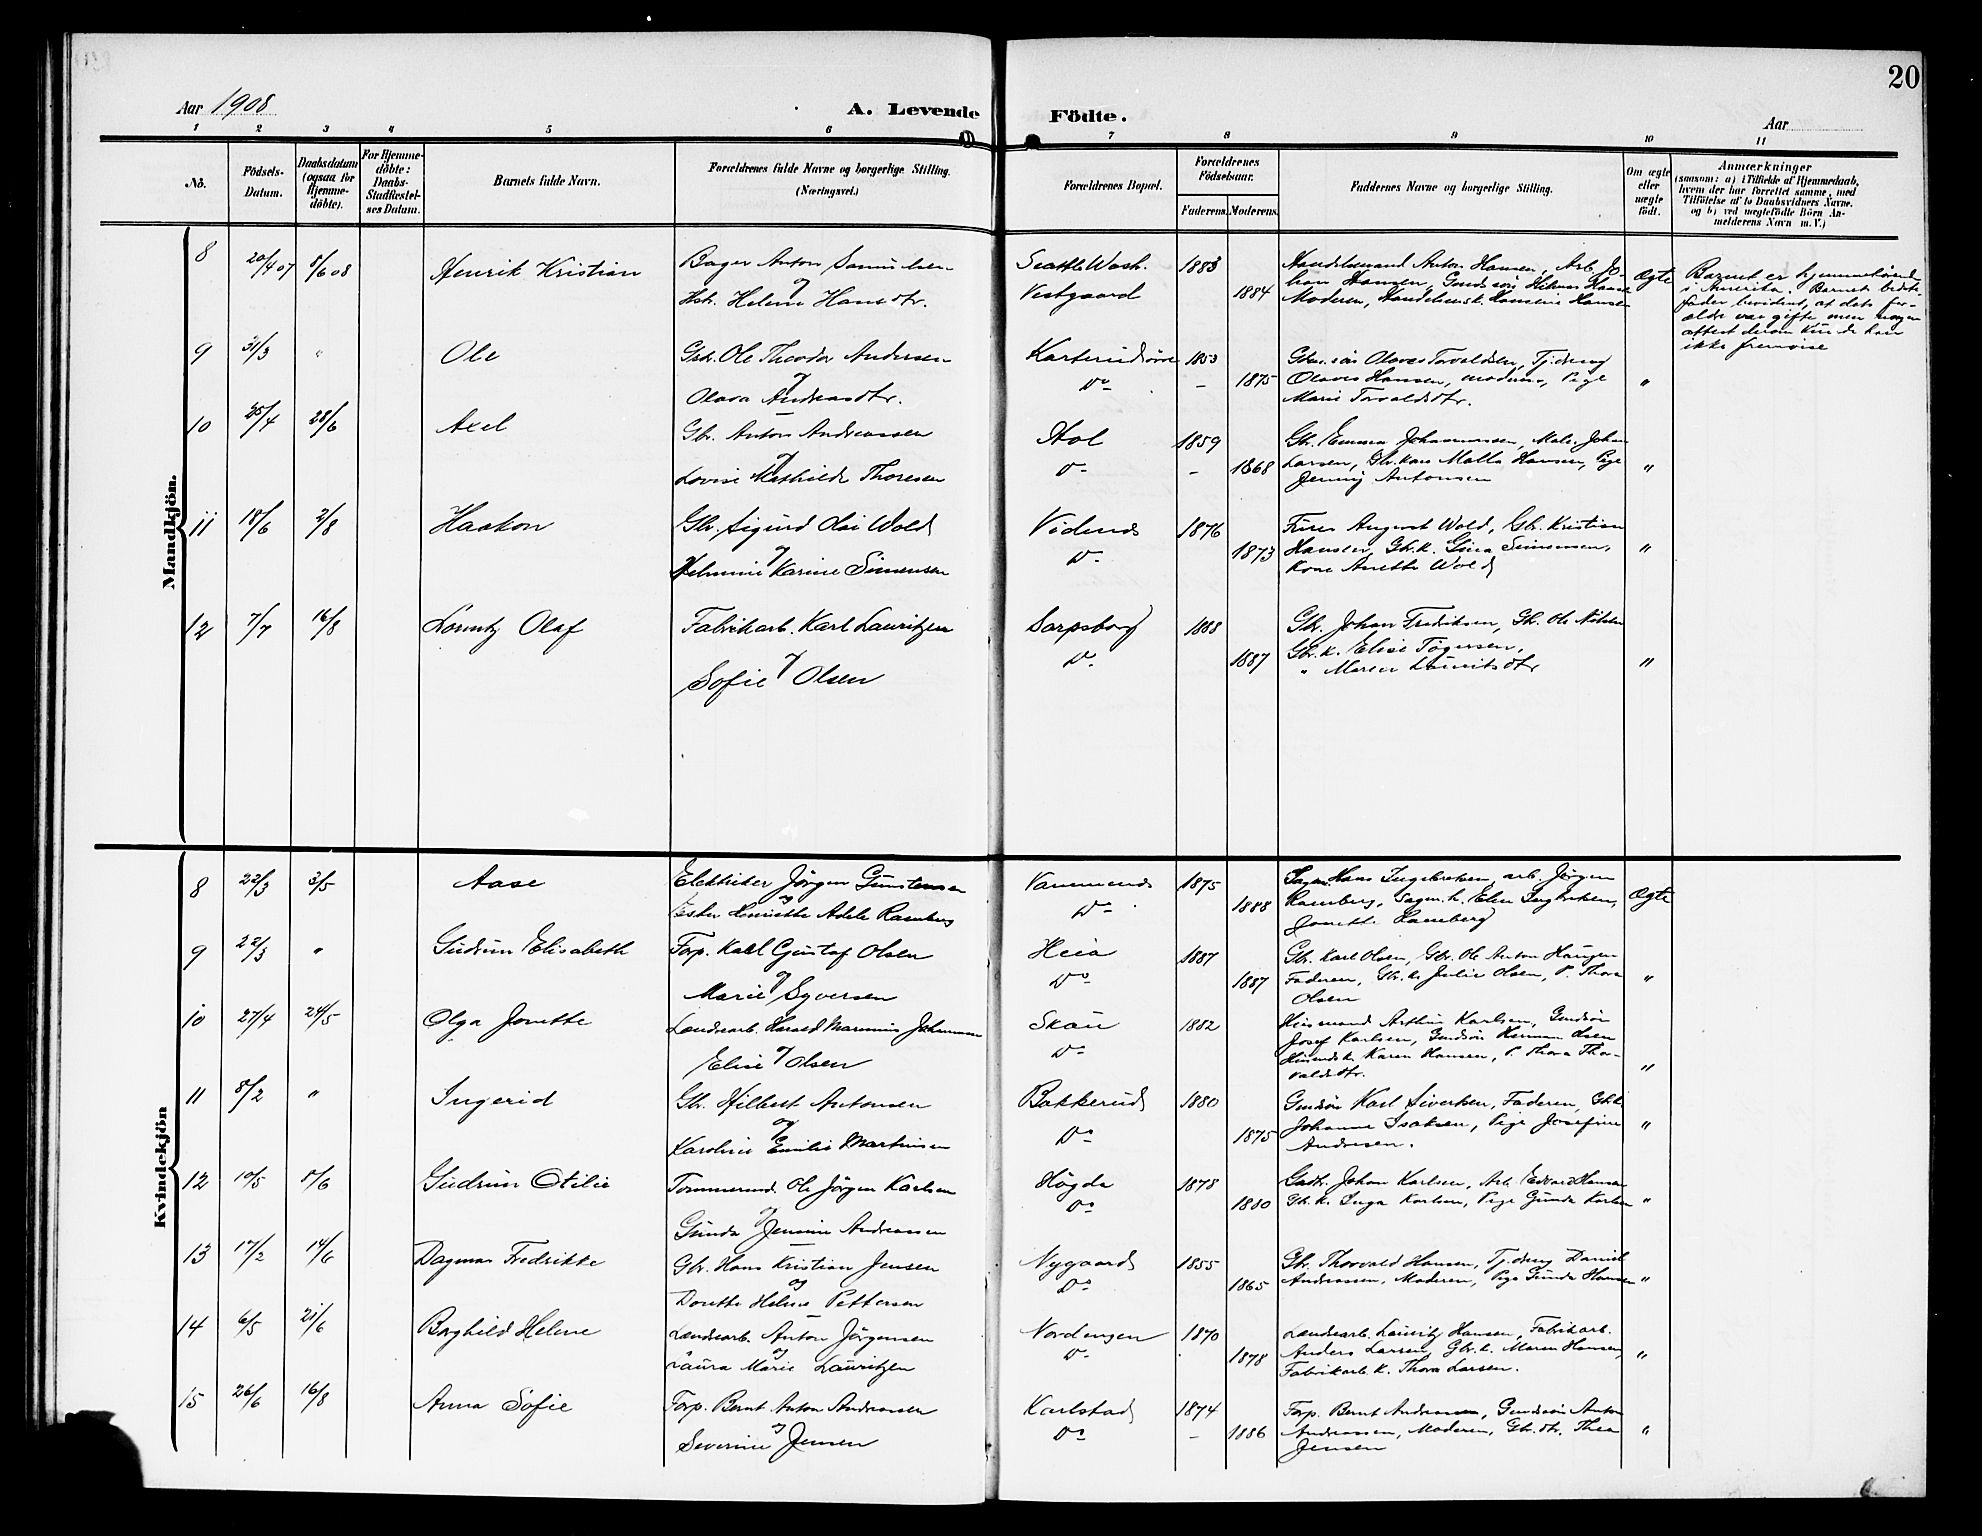 20
Aar 1908
A. Levende Födte.
Aar
1 2 3 4 5 6 7 8 9 10 11
No.
Födsels-Datum.
Daabsdatum (ogsaa for Hjemme-döbte).
For Hjemme-döbte: Daabs-Stadfæstel-ses Datum.
Barnets fulde Navn.
Forældrenes fulde Navne og borgerlige Stilling. (Næringsvei.)
Forældrenes Bopæl.
Forældrenes Födselsaar.
Faderens. Moderens.
Faddernes Navne og borgerlige Stilling.
Om ægte eller uægte födt.
Anmærkninger
(saasom: a) i Tilfælde af Hjemmedaab,
hvem der har forrettet samme, med
Tilföielse af to Daabsvidners Navne.
og b) ved uægtefödte Börn An-
melderens Navn m. V.)
Mandkjön.
8 20/4 07 8/6 08 Henrik Kristian
Bager Anton Samuelsen
og
Hst. Helene Hansdtr.
Seattle Wash. 1883
Vestgaard 1884
Handelsmand Anton Hansen, Arb. Jo-
han Hansen, Hansen
Moderen, Hansine Hansen
Ægte
Barnet er hjemmehörende
i Amerika. Barnets bedste-
fader bevidnet, at dets for-
ældre var gifte men nogen
attest derom kunde han
ikke fremvise
9 31/3 " Ole
Gbr. Ole Theodor Andersen
og
Olava Andreasdtr.
1853
Do - 1875
Olaves Torvaldsen,
Olaves Hansen, Moderen, Pige
Marie Torvaldsdtr.
"
10 25/4 28/6 Axel
Gbr. Anton Andreassen
og
Lovise Mathilde Thoresen
Hol 1859
Do - 1868
Gbr. Emma Johannessen, Maler Johan
Larsen, Gbr. kone Malla Hansen, Pige
Jenny Antonsen
"
11 18/6 2/8 Haakon
Gbr. Sigurd Olai Wold
og
Helmine Karine Simensen
Vidnes 1876
Do 1873
August Wold, Gbr. Kristian
Hansen, Gbr.k. Gina Simensen,
Kone Anette Wold
"
12 7/7 16/8 Lorentz Olaf
Fabrikarb. Karl Lauritzen
og
Sofie Olsen
Sarpsborg 1888
Do 1887
Gbr. Johan Fredriksen, Gbr. Ole Nilsen
Gbr. k. Elise Tögersen,
" Maren Lauritsdtr
"
Kvindekjön
8 22/3 3/5 Aase
Elektriker Jörgen Gunstensen
og
Ester Henriette Adele Ramberg
1875
Do 1888
Hans Ingebretsen, arb. Jörgen
Ramberg, Sagm. k. Elen Ingbretsen,
Jonette Ramberg
Ægte
9 22/3 " Gudrun Elisabeth
Forp. Karl Gustaf Olsen
og
Marie Syversen
Heia 1887
Do 1887
Gbr. Karl Olsen, Gbr. Ole Anton Haugen
Faderen, Gbr. k. Julie Olsen, P. Thora
Olsen
"
10 27/4 24/5 Olga Jonette
Landsarb. Harald Marenius Johannesen
og
Elise Olsen
Skau 1882
Do
Husmand Arthur Karlsen, Gmdsön
Josef Karlsen, Gmdsön Herman Olsen
Husmdsk. Karen Hansen, P. Thora Tho-
valdsdtr.
"
11 8/2 " Ingerid
Gbr. Hilbert Antonsen
og
Karoline Emilie Martinsen
Bakkerud 1880
Do 1875
Gmdsön Karl Sivertsen, Faderen, Gb.k.
Johanne Isaksen, Pige Josefine
Andresen.
"
12 10/5 8/6 Gudrun Otilie
Tömmermd. Ole Jörgen Karlsen
og
Gunda Jensine Andreassen
Högda 1878
Do 1880
Johan Karlsen, Arb. Edvard Hansen
Gbr. k. Inga Karlsen, Pige Gunda Karlsen
"
13 17/2 14/6 Dagmar Fredrikke
Gbr. Hans Kristian Jensen
og
Dorette Helene Pettersen
Nygaard 1855
Do 1865
Gbr. Thorvald Hansen, Tj.dreng Daniel
Andreassen, Moderen, Pige Gunda Hansen
"
14 6/5 21/6 Borghild Helene
Landsarb. Anton Jörgensen
og
Laura Marie Lauritzen
Nordengen 1870
Do 1878
Landsarb. Lauritz Hansen, Fabrikarb.
Anders Larsen, Gbr. k. Maren Hansen,
Fabrikarb. k. Thora Larsen.
"
15 26/6 16/8 Anna Sofie
Forp. Bernt Anton Andreassen
og
Severine Jensen
Karlstad 1874
Do - 1886
Forp. Bernt Andreassen, Gmdsön Anton
Andreassen, Moderen, Gbr. dtr. Thea
Jensen
"